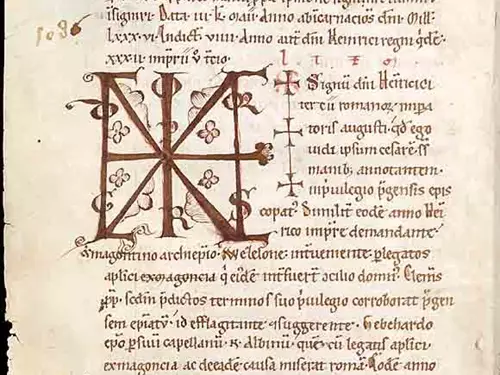 signiri · Data · iii · k · maii · Anno abicarnaciōis dnī · Mill
1086
lxxx · vi · Indict̄ · viiii · Anno aut̄ dnī Heinrici regni qdē
xxxii · impīi v̄ tcio ·
Signū dnī Heīricī
tercii romanoꝝ impa
toris augusti · qđ ego
vidi ipsum cesarē ss
manib; annotantem ·
in pvilegio pgensis epis
copat · Similit̄ eodē anno Heī
rico impre demandante ·
maguntino archiep̄o · Wezelone · int̄veniente · p legatos
aplici ex magoncia q̄ eidē int̄fuer̄t ↄcilio domn · Clem̄s
pp · scdm p̄dictos terminos suo pvilegio corroborat pgen
sem ep̄atū · id efflagitante ⁊ suggerente · Gebehardo
ep̄o · p suū capellanū · Albinū · quē cū legatis aplici
ex magoncia ac de eadē causa miserat romā · Eodē anno